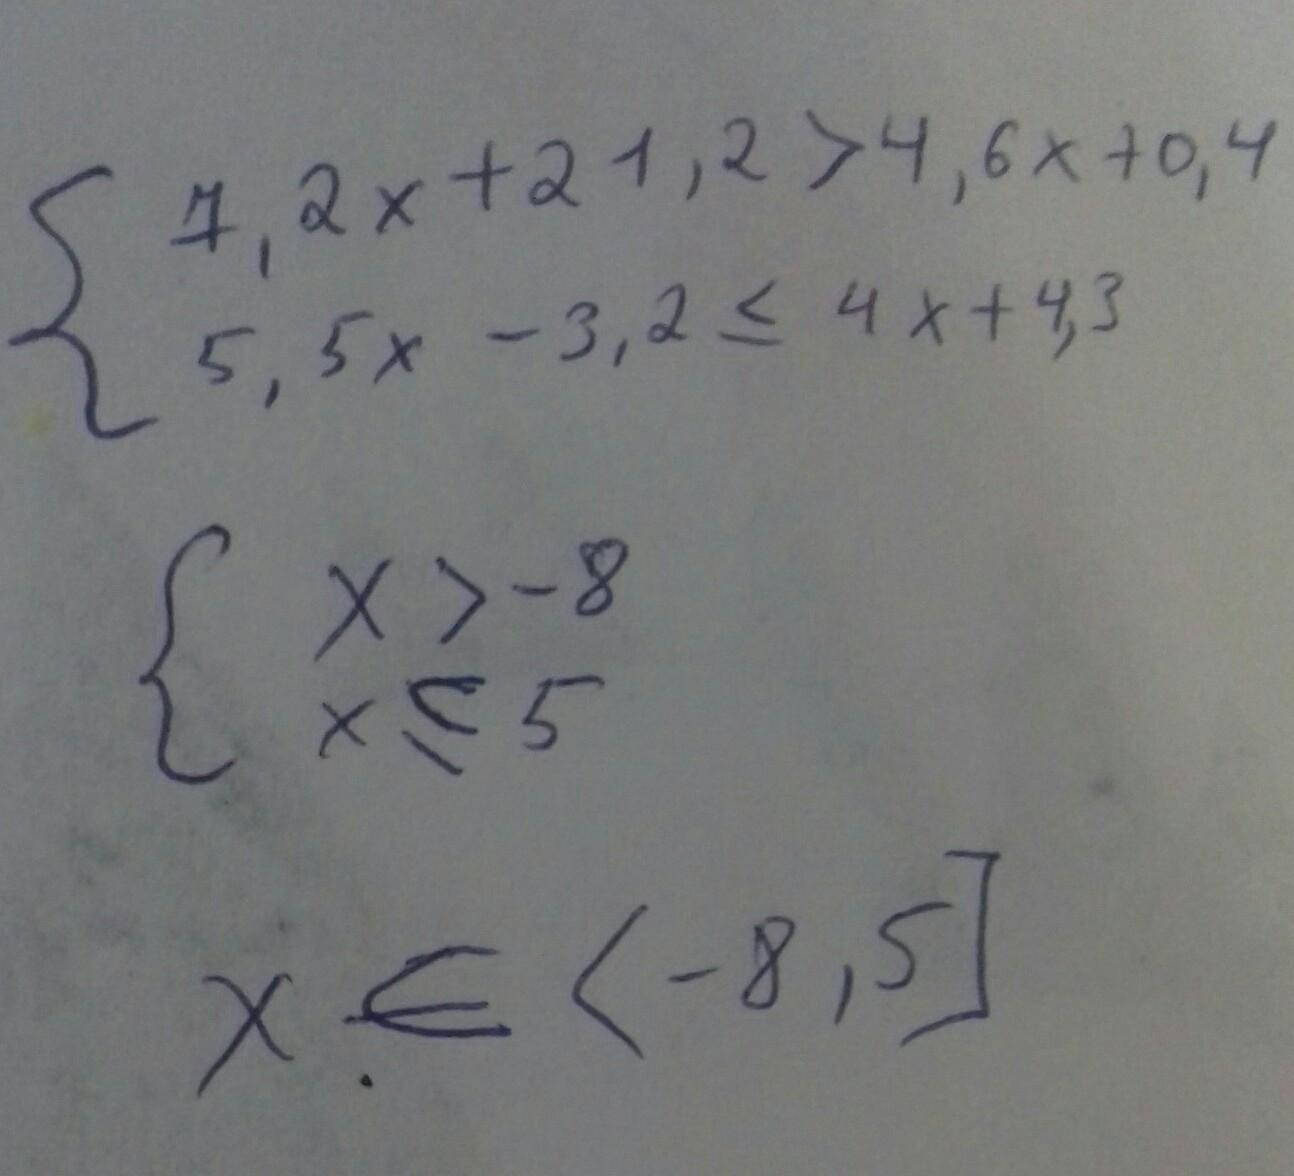 7,2x+21,2>4,6x+0,4
5,5x-3,2≤4x+4,3
x>-8
x≤5
x∈(-8,5]